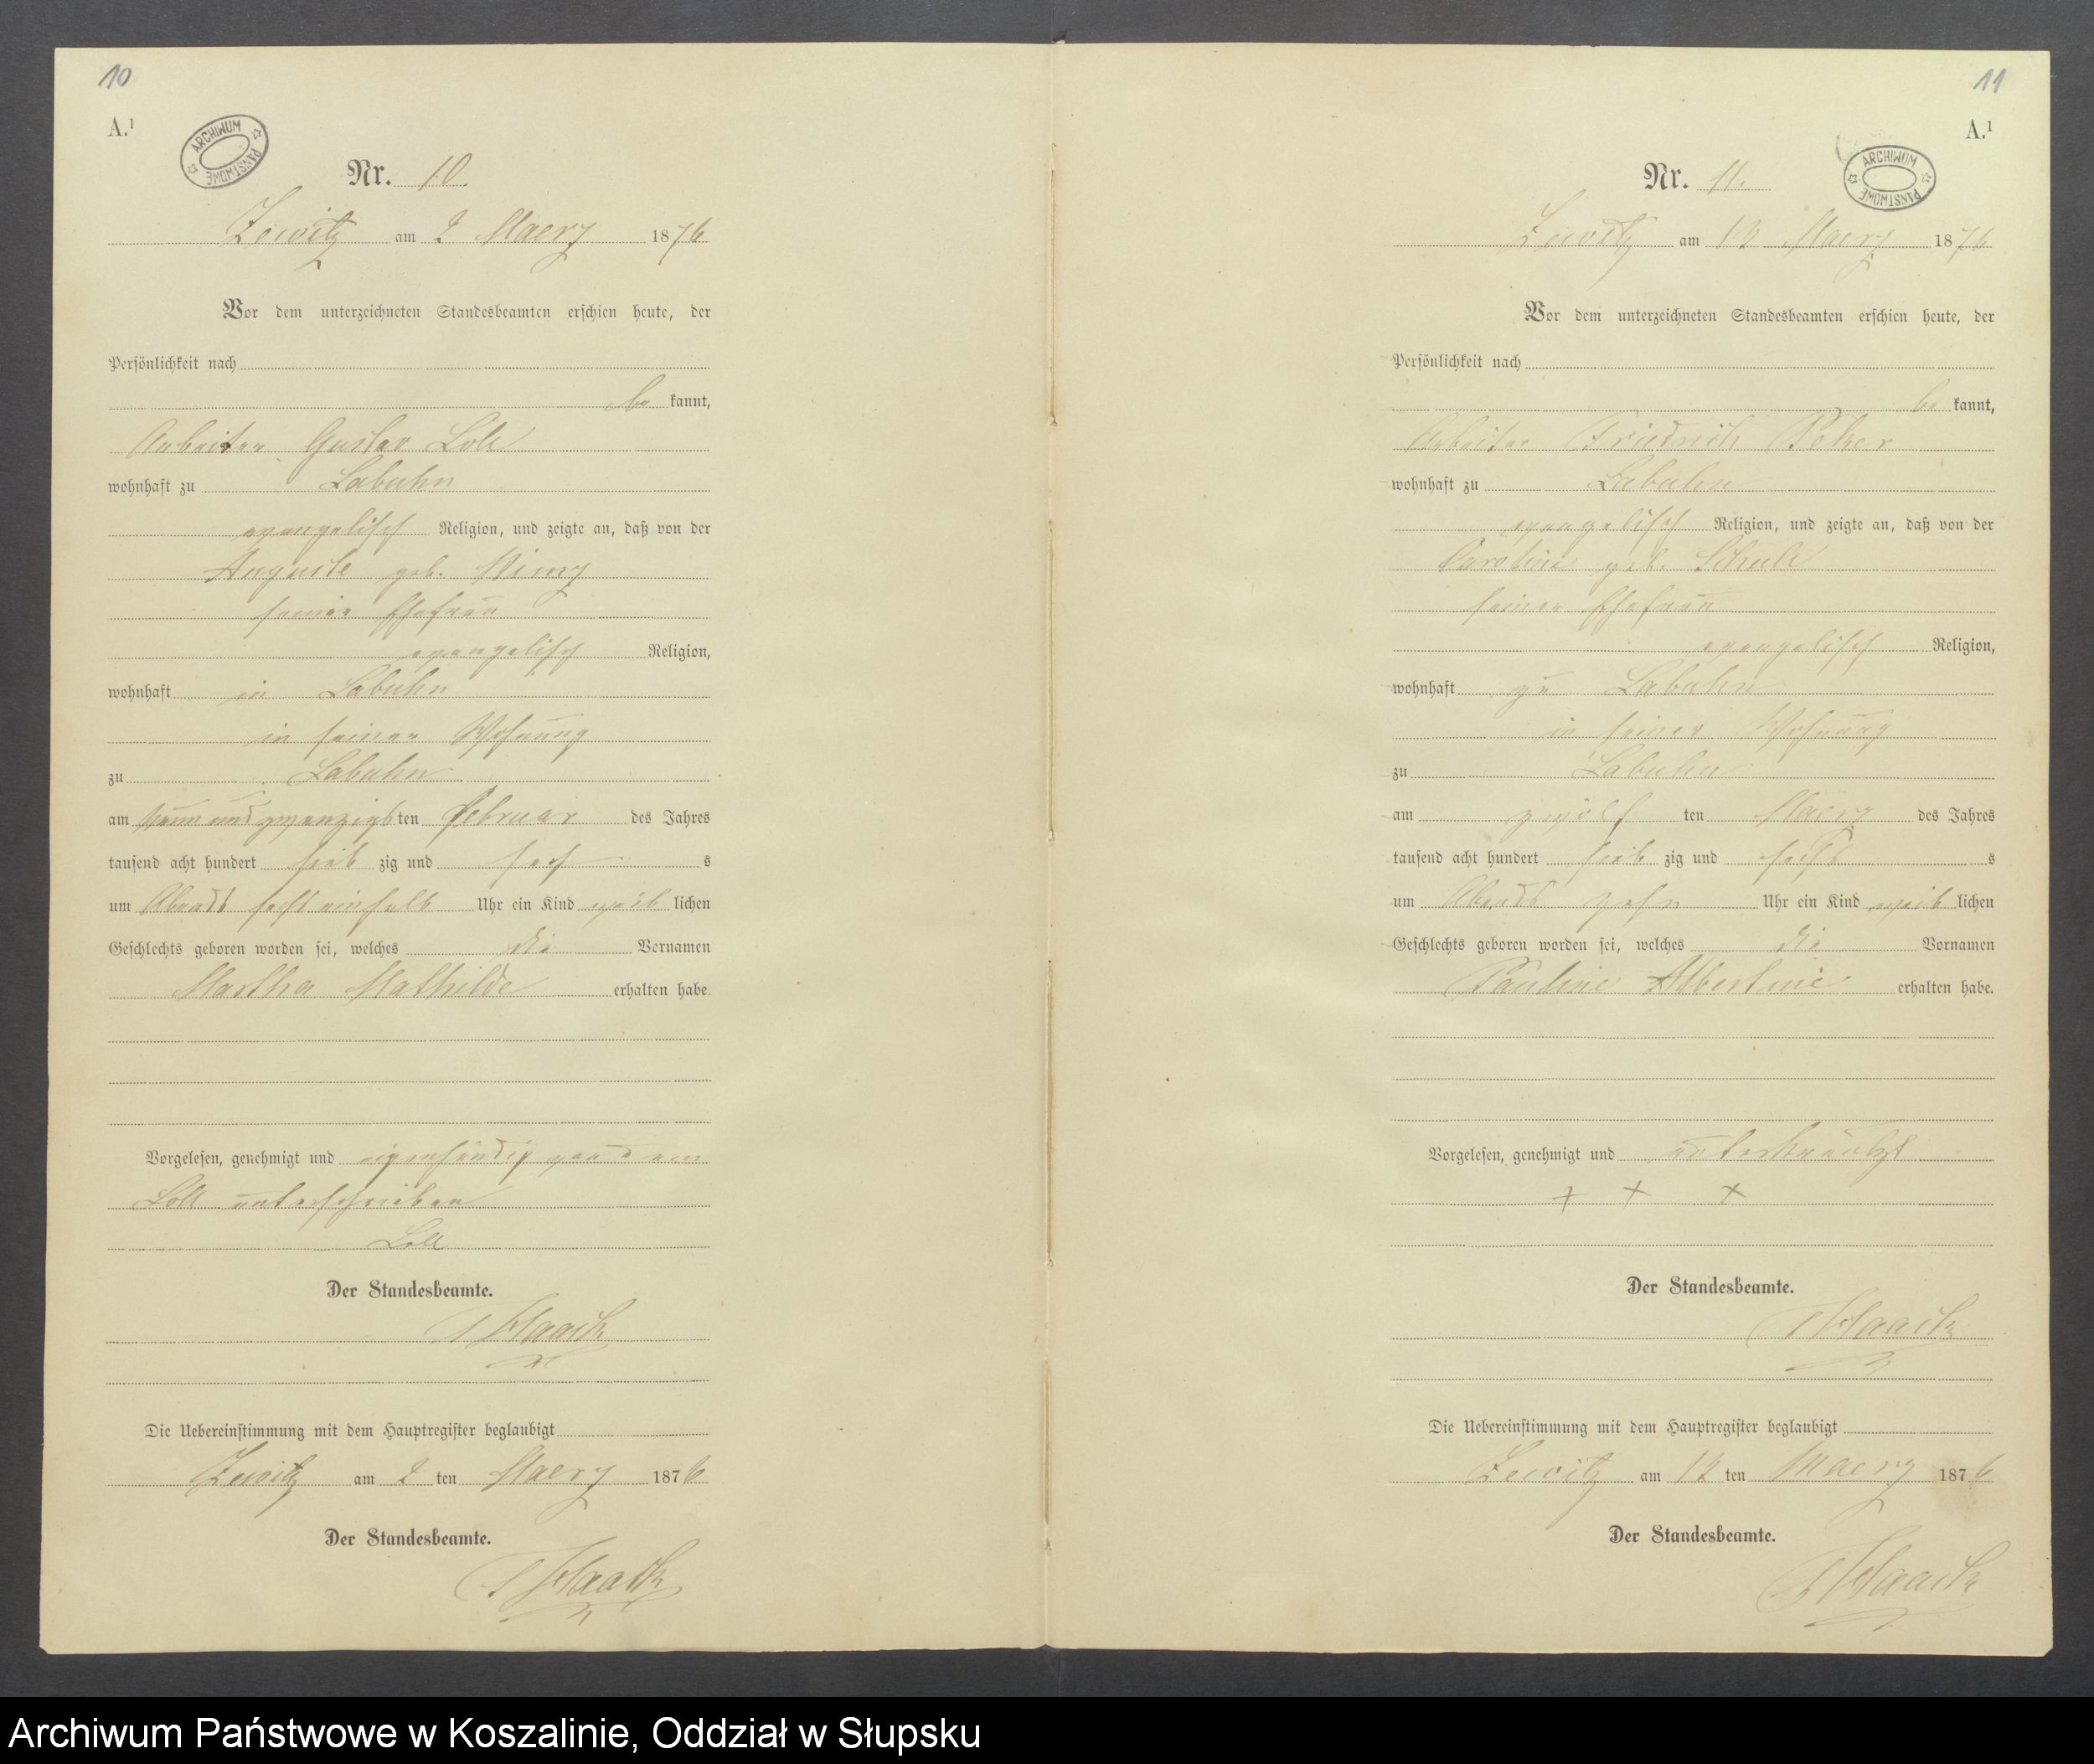 10
A.¹
ARCHIWUM PAŃSTWOWE
Nr. 10.
Zewitz am 2 Maerz 1876
Vor dem unterzeichneten Standesbeamten erschien heute, der
Persönlichkeit nach
be kannt,
Arbeiter Gustav Loll
wohnhaft zu Labuhn
evangelisch Religion, und zeigte an, daß von der
Auguste geb.
seiner Ehefrau
evangelisch Religion,
wohnhaft in Labuhn
in seiner Wohnung
zu Labuhn
am neun und zwanzigsten Februar des Jahres
tausend acht hundert sieb zig und sech s
um Abends sechs einhalb Uhr ein Kind weib lichen
Geschlechts geboren worden sei, welches die Vornamen
Martha Mathilde erhalten habe.
Vorgelesen, genehmigt und eigenhändig von dem
Loll unterschrieben
Loll
Der Standesbeamte.
Haack
Die Uebereinstimmung mit dem Hauptregister beglaubigt
Zewitz am 2 ten Maerz 1876
Der Standesbeamte.
Haack
11
A.¹
ARCHIWUM PAŃSTWOWE
Nr. 11.
Zewitz am 12 Maerz 1876
Vor dem unterzeichneten Standesbeamten erschien heute, der
Persönlichkeit nach
be kannt,
Arbeiter Friedrich
wohnhaft zu Labuhn
evangelisch Religion, und zeigte an, daß von der
Caroline geb.
seiner Ehefrau
evangelisch Religion,
wohnhaft zu Labuhn
in seiner Wohnung
zu Labuhn
am zwölf ten Maerz des Jahres
tausend acht hundert sieb zig und sechs s
um Abends zehn Uhr ein Kind weib lichen
Geschlechts geboren worden sei, welches die Vornamen
Pauline Albertine erhalten habe.
Vorgelesen, genehmigt und unterkreuzt
+ + +
Der Standesbeamte.
Haack
Die Uebereinstimmung mit dem Hauptregister beglaubigt
Zewitz am 12 ten Maerz 1876
Der Standesbeamte.
Haack
Archiwum Państwowe w Koszalinie, Oddział w Słupsku